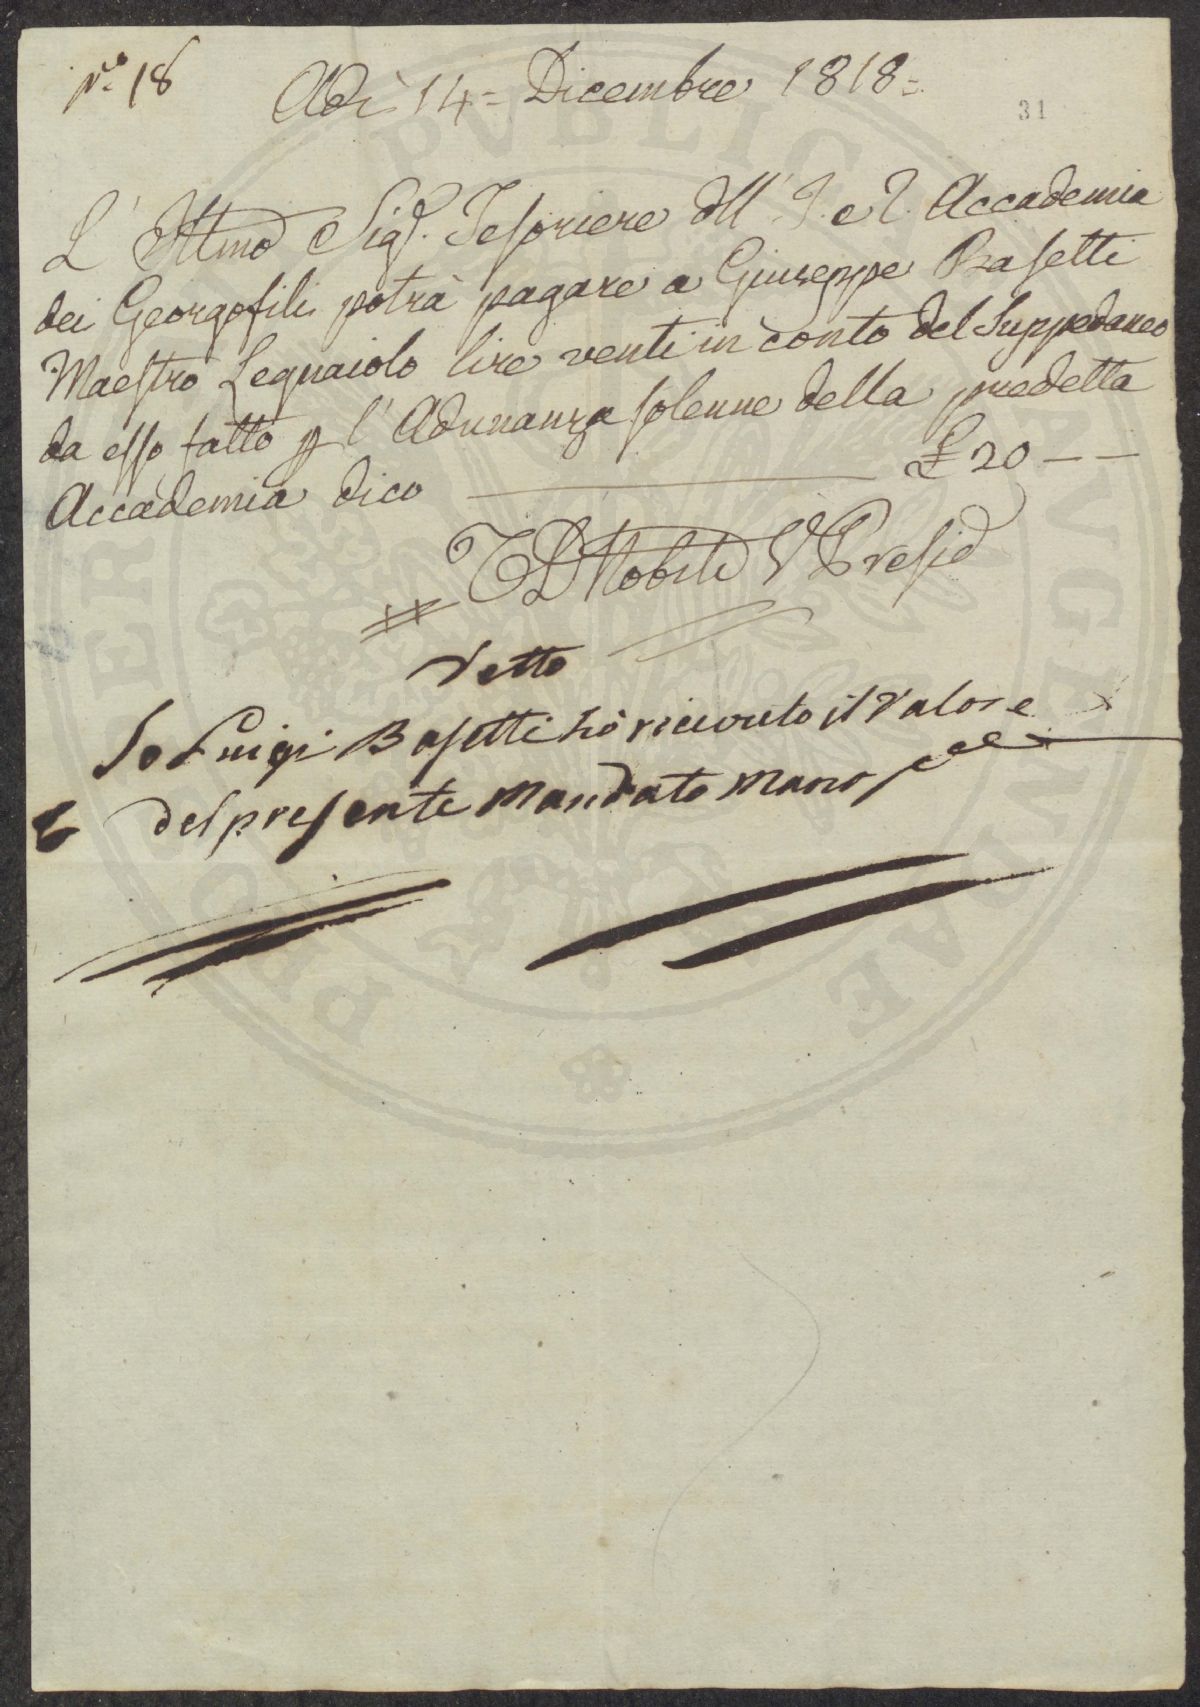 N.o 18
Adì 14 = Dicembre 1818 =
31
L'Illmo Sigr. Tesoriere dell' I. e R. Accademia
dei Georgofili potrà pagare a Giuseppe Basetti
Maestro Legnaiolo lire venti in conto del Suppedaneo
da esso fatto p l'Adunanza solenne della predetta
Accademia dico £ 20 — —
Nobili V Presid
Detto
Io Luigi Basetti hò ricevuto il Valore
del presente Mandato Mano